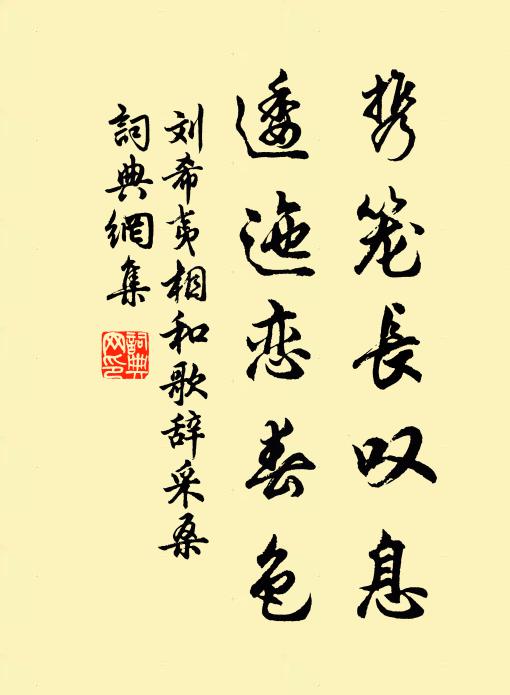 携笼長叹息
逶迤恋春色
刘希夷相和歌辞采桑
詞典網集
詞典网印